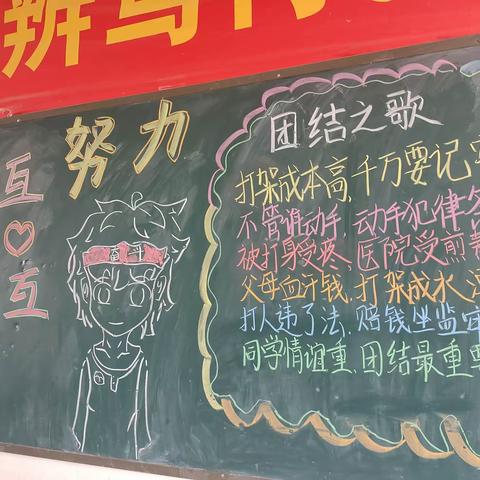 努力
互
互
团结之歌
打架成本高,千万要记
不管谁动手,动手犯律
被打身受疼、医院受煎
父母血汗钱、打架成水
打人违了法、赔钱坐监牢
同学情谊重、团结最重要